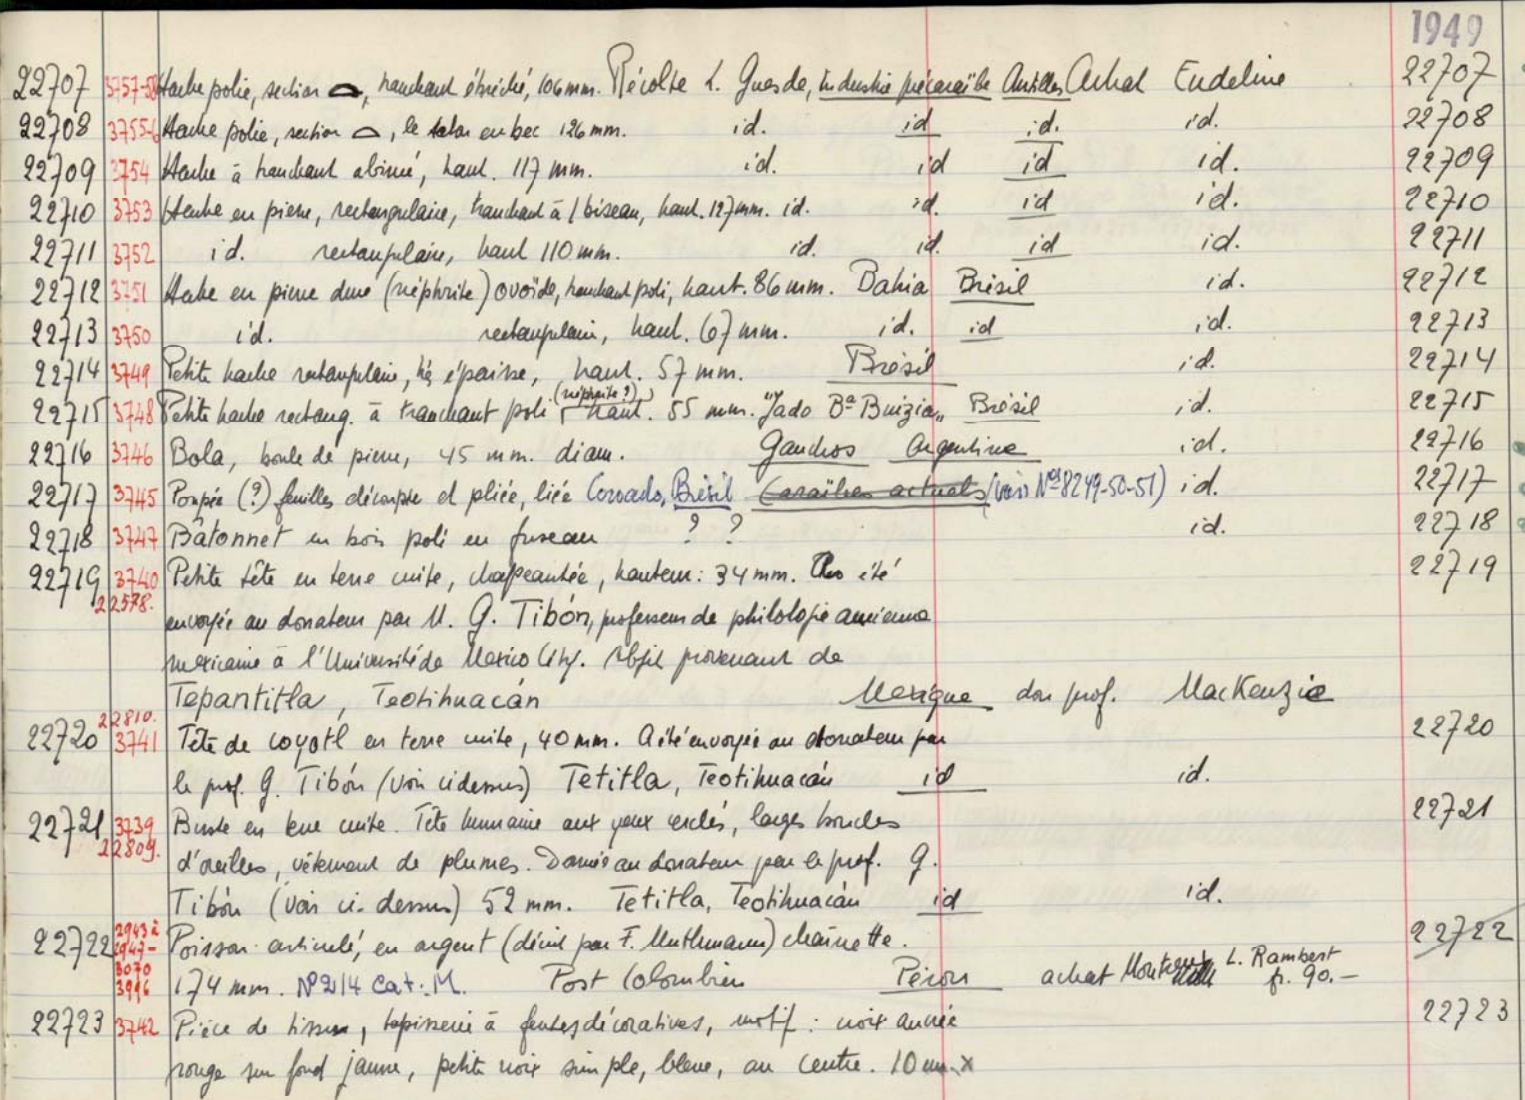 1949
22707 3757-58 Hache polie, section , tranchant ébréché, 106 mm. Récolte L. Guesde, Industrie précaraïbe Antilles Achat Eudeline 22707
22708 3755-6 Hache polie, section , le talon en bec 126 mm. id. id id. id. 22708
22709 3754 Hache à tranchant abimé, haut. 117 mm. id. id id id. 22709
22710 3753 Hache en pierre, rectangulaire, tranchant à 1 biseau, haut. 127 mm. id. id. id id. 22710
22711 3752 id. rectangulaire, haut 110 mm. id. id. id id. 22711
22712 3751 Hache en pierre dure (néphrite) ovoïde, tranchant poli, haut. 86 mm. Bahia Brésil id. 22712
22713 3750 id. rectangulaire, haut. 67 mm. id. id id. 22713
22714 3749 Petite hache rectangulaire, très épaisse, haut. 57 mm. Brésil id. 22714
(néphrite ?)
22715 3748 Petite hache rectang. à tranchant poli haut. 55 mm. "Jado Bª Buizia" Brésil id. 22715
22716 3746 Bola, boule de pierre, 45 mm. diam. Gauchos Argentine id. 22716
22717 3745 Poupée (?) feuilles découpée et pliée, liée Coroado, Brésil Caraïbes actuels (voir Nos 8249-50-51) id. 22717
22718 3747 Bâtonnet en bois poli en fuseau ? ? id. 22718
22719 3740 Petite tête en terre cuite, chapeautée, hauteur: 34 mm. été 22719
22578.
envoyée au donateur par M. G. Tibón, professeur de philologie ancienne
mexicaine à l'Université de Mexico City. Objet provenant de
Tepantitla, Teotihuacán Mexique don prof. MacKenzie
22810.
22720 3741 Tête de coyotl en terre cuite, 40 mm. A été envoyée au donateur par 22720
le prof. G. Tibón (voir ci dessus) Tetitla, Teotihuacán id id.
22721 3739 Buste en terre cuite. Tête humaine aux yeux cerclés, larges boucles 22721
22809.
d'oreilles, vêtement de plumes. Donnée au donateur par le prof. G.
Tibón (voir ci-dessus) 52 mm. Tetitla, Teotihuacán id id.
2943 à
22722 2947- Poisson articulé, en argent (décrit par F. Muthmann) chaînette. 22722
3070
3996 174 mm. Nº 214 Cat. M. Post Colombien Pérou achat Montreux L. Rambert fr. 90.-
22723 3742 Pièce de tissu, tapisserie à fentes décoratives, motif : croix ancrée 22723
rouge sur fond jaune, petite croix simple, bleue, au centre. 10 cm. x